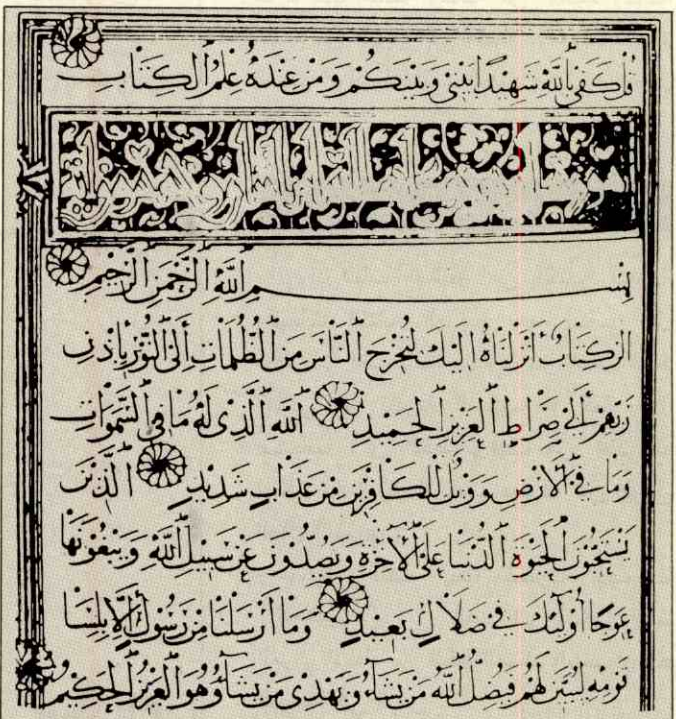 قل كفى بالله شهيدا بيني وبينكم ومن عنده علم الكتاب
بسم الله الرحمن الرحيم
الر كتاب أنزلناه اليك لتخرج الناس من الظلمات الى النور باذن
ربهم الى صراط العزيز الحميد الله الذي له ما في السموات
وما في الارض وويل للكافرين من عذاب شديد الذين
يستحبون الحيوة الدنيا على الآخرة ويصدون عن سبيل الله ويبغونها
عوجا أولئك في ضلال بعيد وما أرسلنا من رسول إلا بلسا
قومه ليبين لهم فيضل الله من يشاء ويهدي من يشاء وهو العزيز الحكيم و